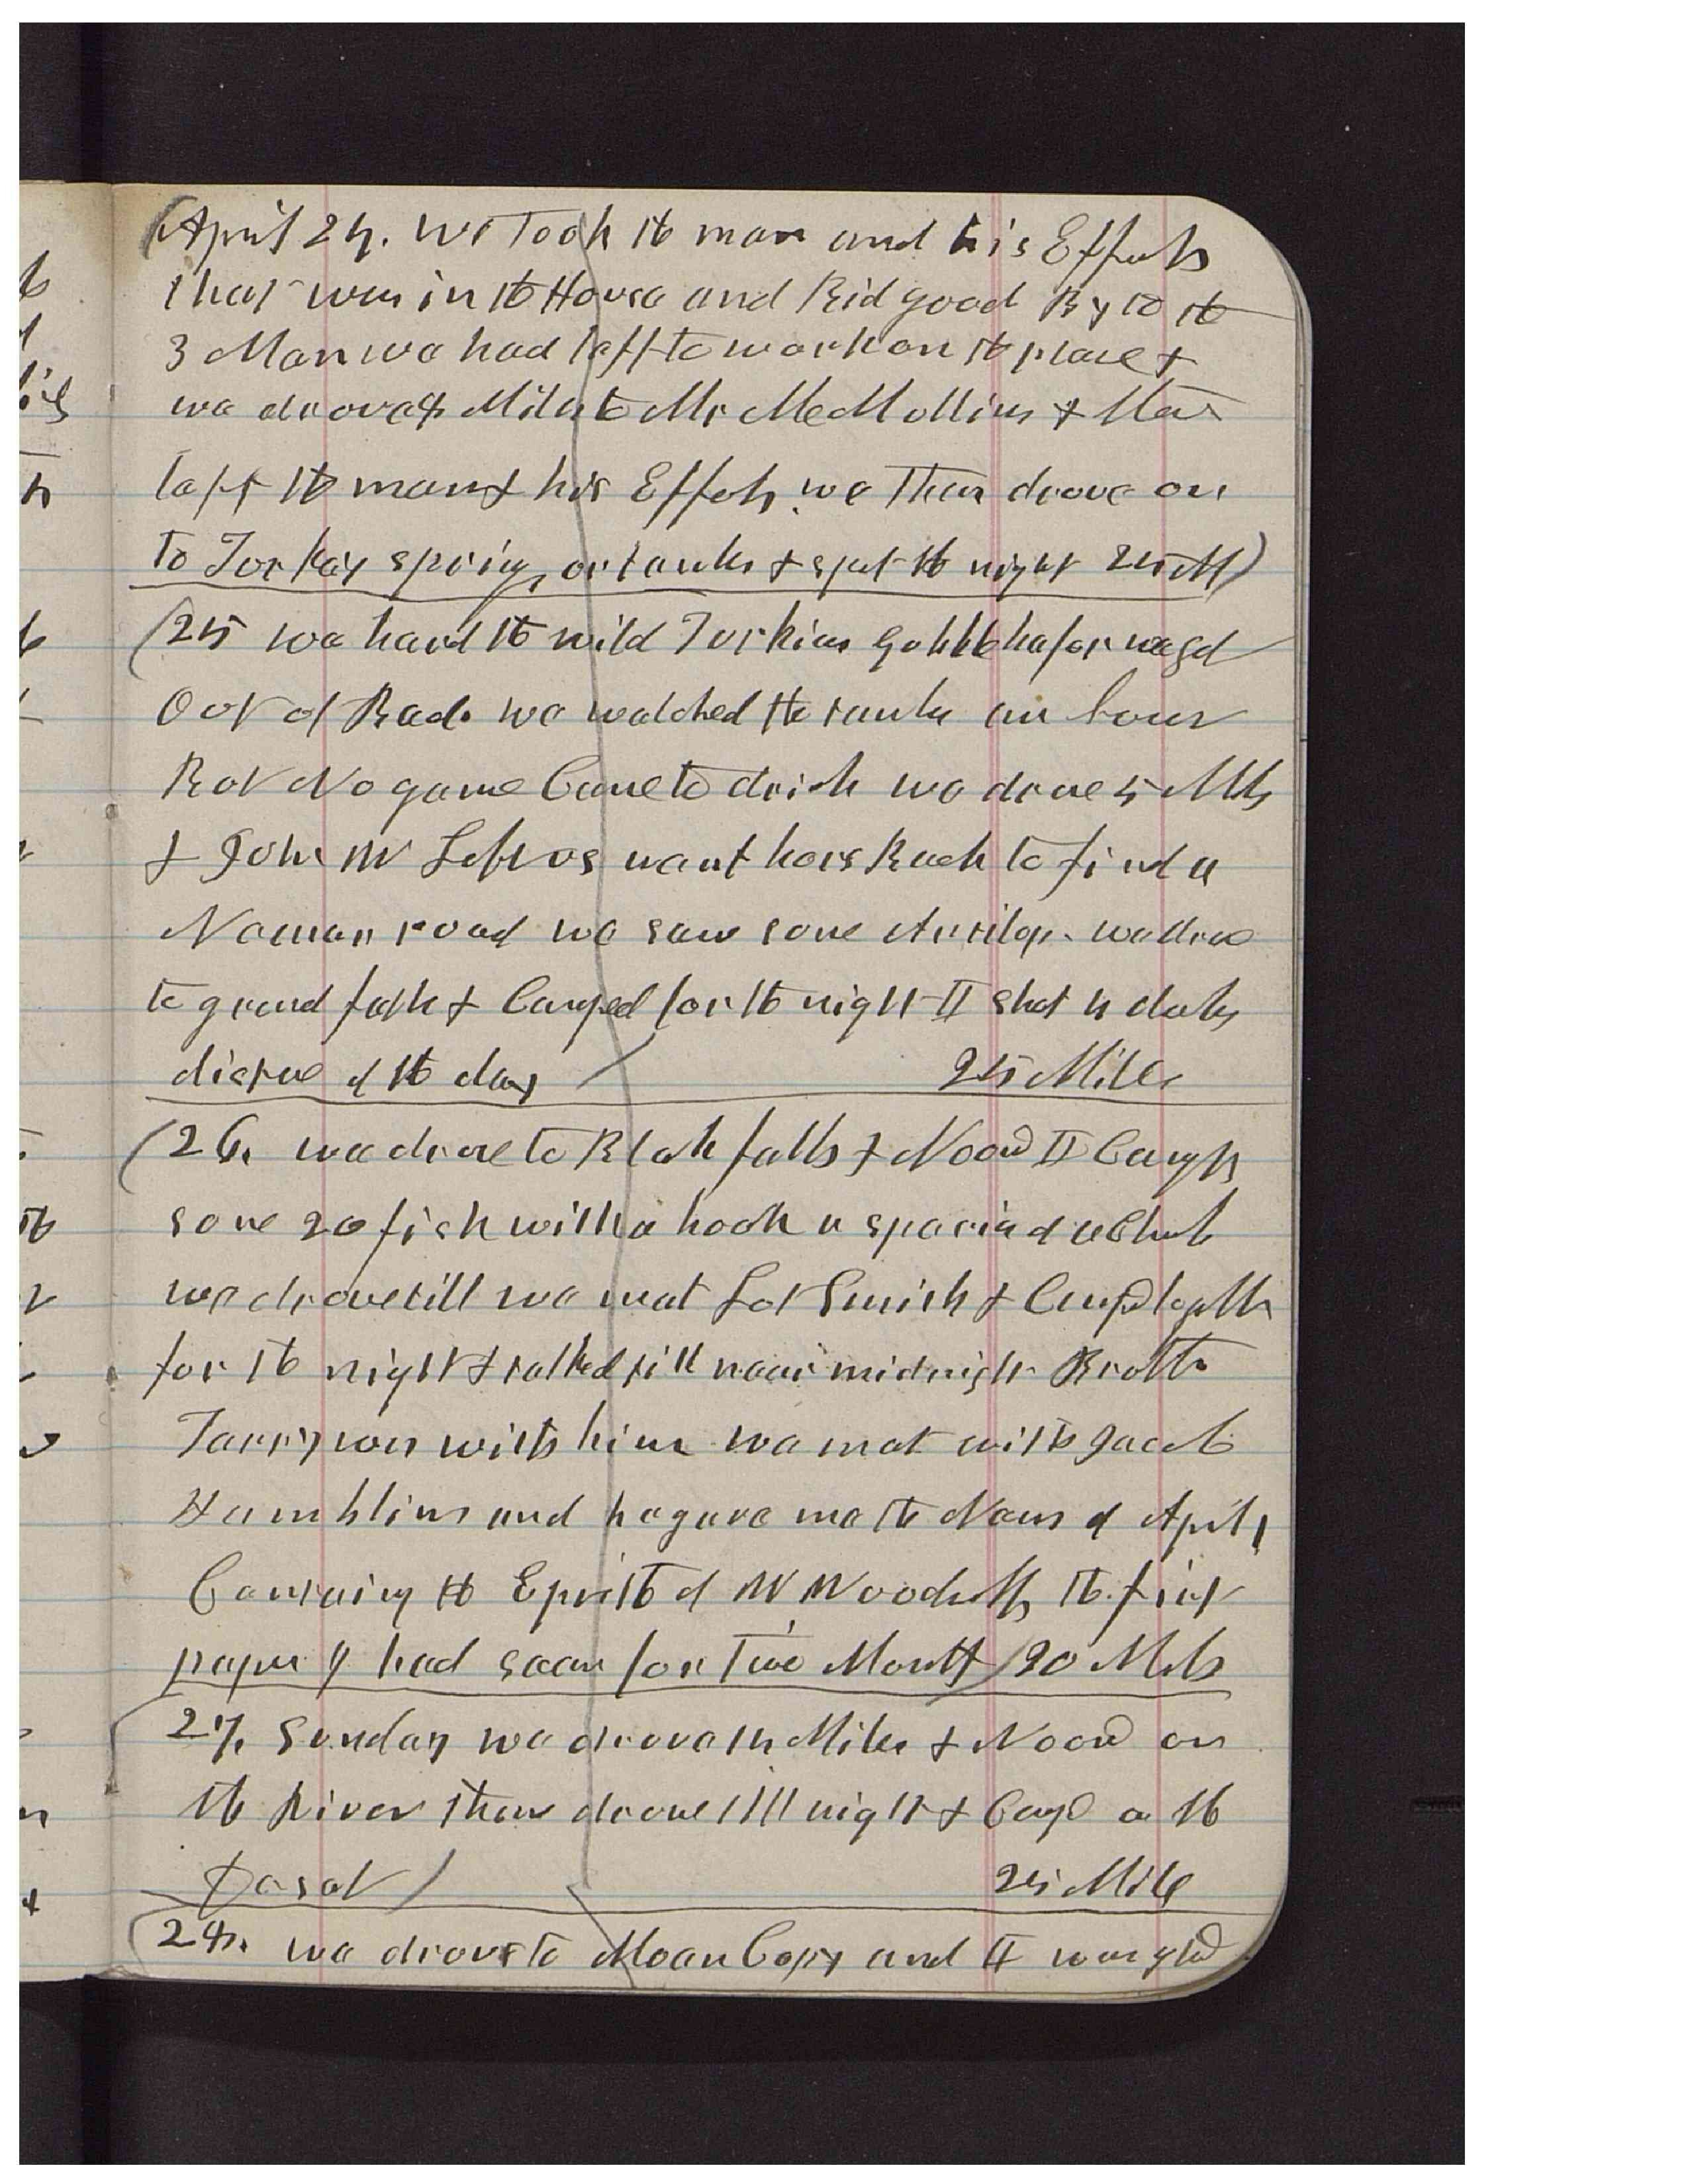 (April 24. We Took the man and his Effects
that was in the House and Bid good By to the
3 Men we had left to work on the place &
we drove 8 Miles to Mr McMollins &
left the man & his Effects. we then drove on
to Turkey spring or tanks & spent the night 25 M)
(25 we heard the wild Turkies gobble before we got
Out of Bed. we watched the tanks an hour
But No game Came to drink we drove 5 Mls
& John W Left us went hors Back to find a
road we saw some Antilope. we drove
to grand falls & Camped for the night II shot 4 ducks
distance of the day / 25 Miles
(26. we drove to Black falls & Noond II Caught
some 20 fish with a hook a specie of a Chub
we drove till we met Lot Smith & Campd together
for the night & talked till near midnight Brother
Tarry was with him we met with Jacob
Hamblin and he gave me the News of April 1
Containing the Epistle of W Woodruff, the first
paper I had seen for Two Months) 20 Mls
27. Sunday we drove 14 Miles & Noond on
the River then drove till night & Campd on the
Desert) 25 Miles
28. we drove to Moan Copy and II was glad